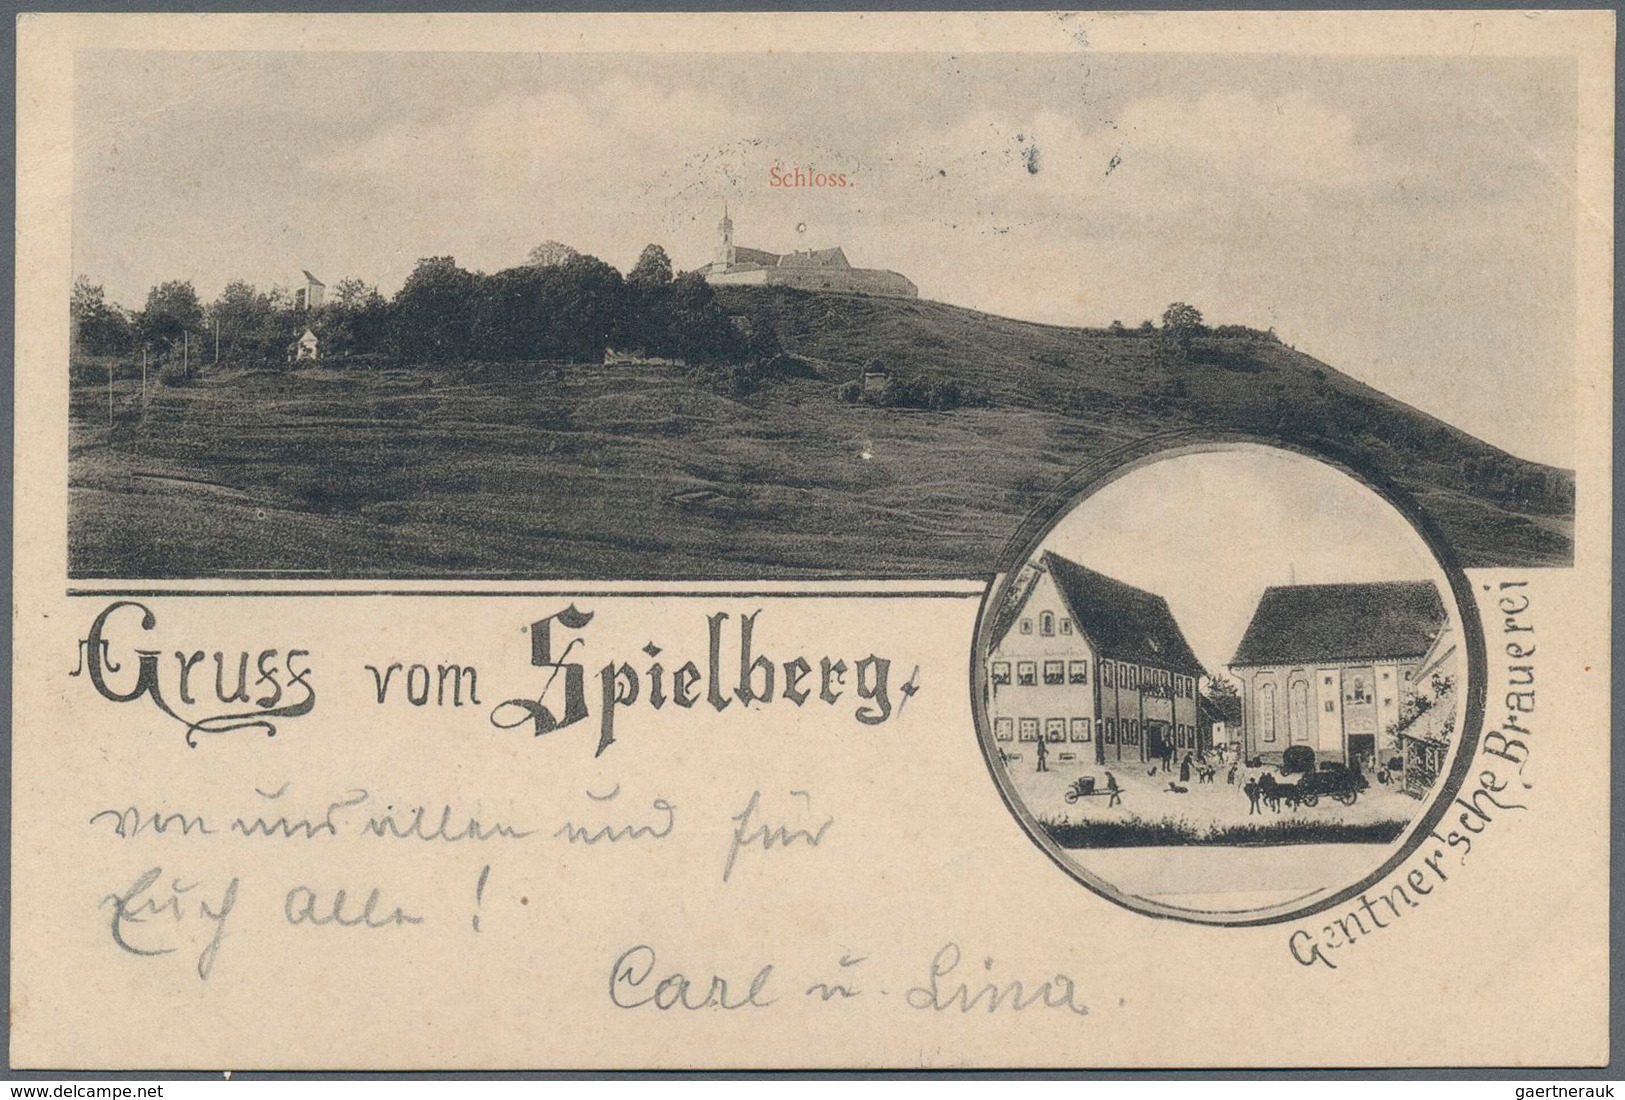 Schloss.
Gruss vom Spielberg.
Gentner'sche Brauerei
von uns allen und für
Euch Alle!
Carl u. Lina.
www.delcampe.net
gaertnerauk